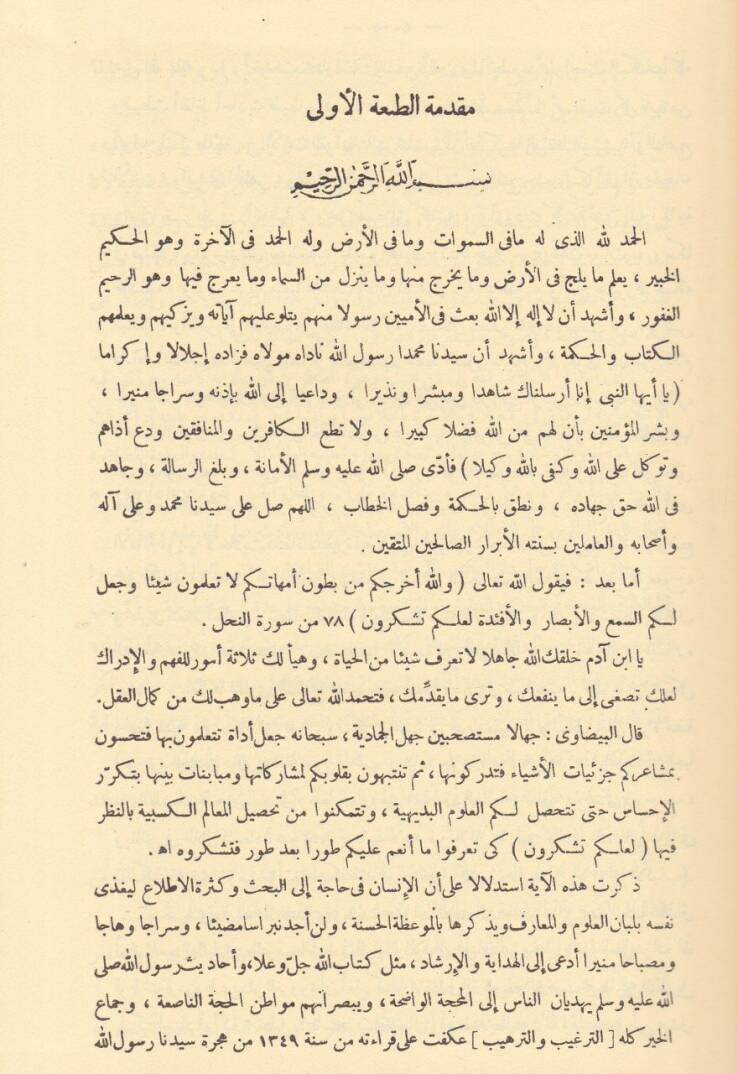 مقدمة الطبعة الأولى
بسم الله الرحمن الرحيم
الحمد لله الذى له مافى السموات وما فى الأرض وله الحمد فى الآخرة وهو الحكيم
الخبير ، يعلم ما يلج فى الأرض وما يخرج منها وما ينزل من السماء وما يعرج فيها وهو الرحيم
الغفور ، وأشهد أن لا إله إلا الله بعث فى الأميين رسولا منهم يتلو عليهم آياته ويزكيهم ويعلمهم
الكتاب والحكمة ، وأشهد أن سيدنا محمدا رسول الله ناداه مولاه فزاده إجلالا وإكراما
( يا أيها النبى إنا أرسلناك شاهدا ومبشرا ونذيرا ، وداعيا إلى الله بإذنه وسراجا منيرا ،
وبشر المؤمنين بأن لهم من الله فضلا كبيرا ، ولا تطع الكافرين والمنافقين ودع أذاهم
وتوكل على الله وكفى بالله وكيلا ) فأدّى صلى الله عليه وسلم الأمانة ، وبلغ الرسالة ، وجاهد
فى الله حق جهاده ، ونطق بالحكمة وفصل الخطاب ، اللهم صل على سيدنا محمد وعلى آله
وأصحابه والعاملين بسنته الأبرار الصالحين المتقين .
أما بعد : فيقول الله تعالى ( والله أخرجكم من بطون أمهاتكم لا تعلمون شيئا وجعل
لكم السمع والأبصار والأفئدة لعلكم تشكرون ) ٧٨ من سورة النحل .
يا ابن آدم خلقك الله جاهلا لا تعرف شيئا من الحياة ، وهيأ لك ثلاثة أسور للفهم والإدراك
لعلك تصغى إلى ما ينفعك ، وترى ما يقدّمك ، فتحمد الله تعالى على ما وهب لك من كمال العقل.
قال البيضاوى : جهالا مستصحبين جهل الجمادية ، سبحانه جعل أداة تتعلمون بها فتحسون
بمشاعركم جزئيات الأشياء فتدركونها ، ثم تنتبهون بقلوبكم لمشاركاتها ومباينات بينها بتكرّر
الإحساس حتى تتحصل لكم العلوم البديهية ، وتتمكنوا من تحصيل المعالم الكسبية بالنظر
فيها ( لعلكم تشكرون ) كى تعرفوا ما أنعم عليكم طورا بعد طور فتشكروه اه.
ذكرت هذه الآية استدلالا على أن الإنسان فى حاجة إلى البحث وكثرة الاطلاع ليغذى
نفسه بلبان العلوم والمعارف ويذكرها بالموعظة الحسنة ، ولن أجد نبراسا مضيئا ، وسراجا وهاجا
ومصباحا منيرا أدعى إلى الهداية والإرشاد ، مثل كتاب الله جلّ وعلا، وأحاديث رسول الله صلى
الله عليه وسلم يهديان الناس إلى المحجة الواضحة ، ويبصرانهم مواطن الحجة الناصعة ، وجماع
الخير كله [ الترغيب والترهيب ] عكفت على قراءته من سنة ١٣٤٩ من هجرة سيدنا رسول الله